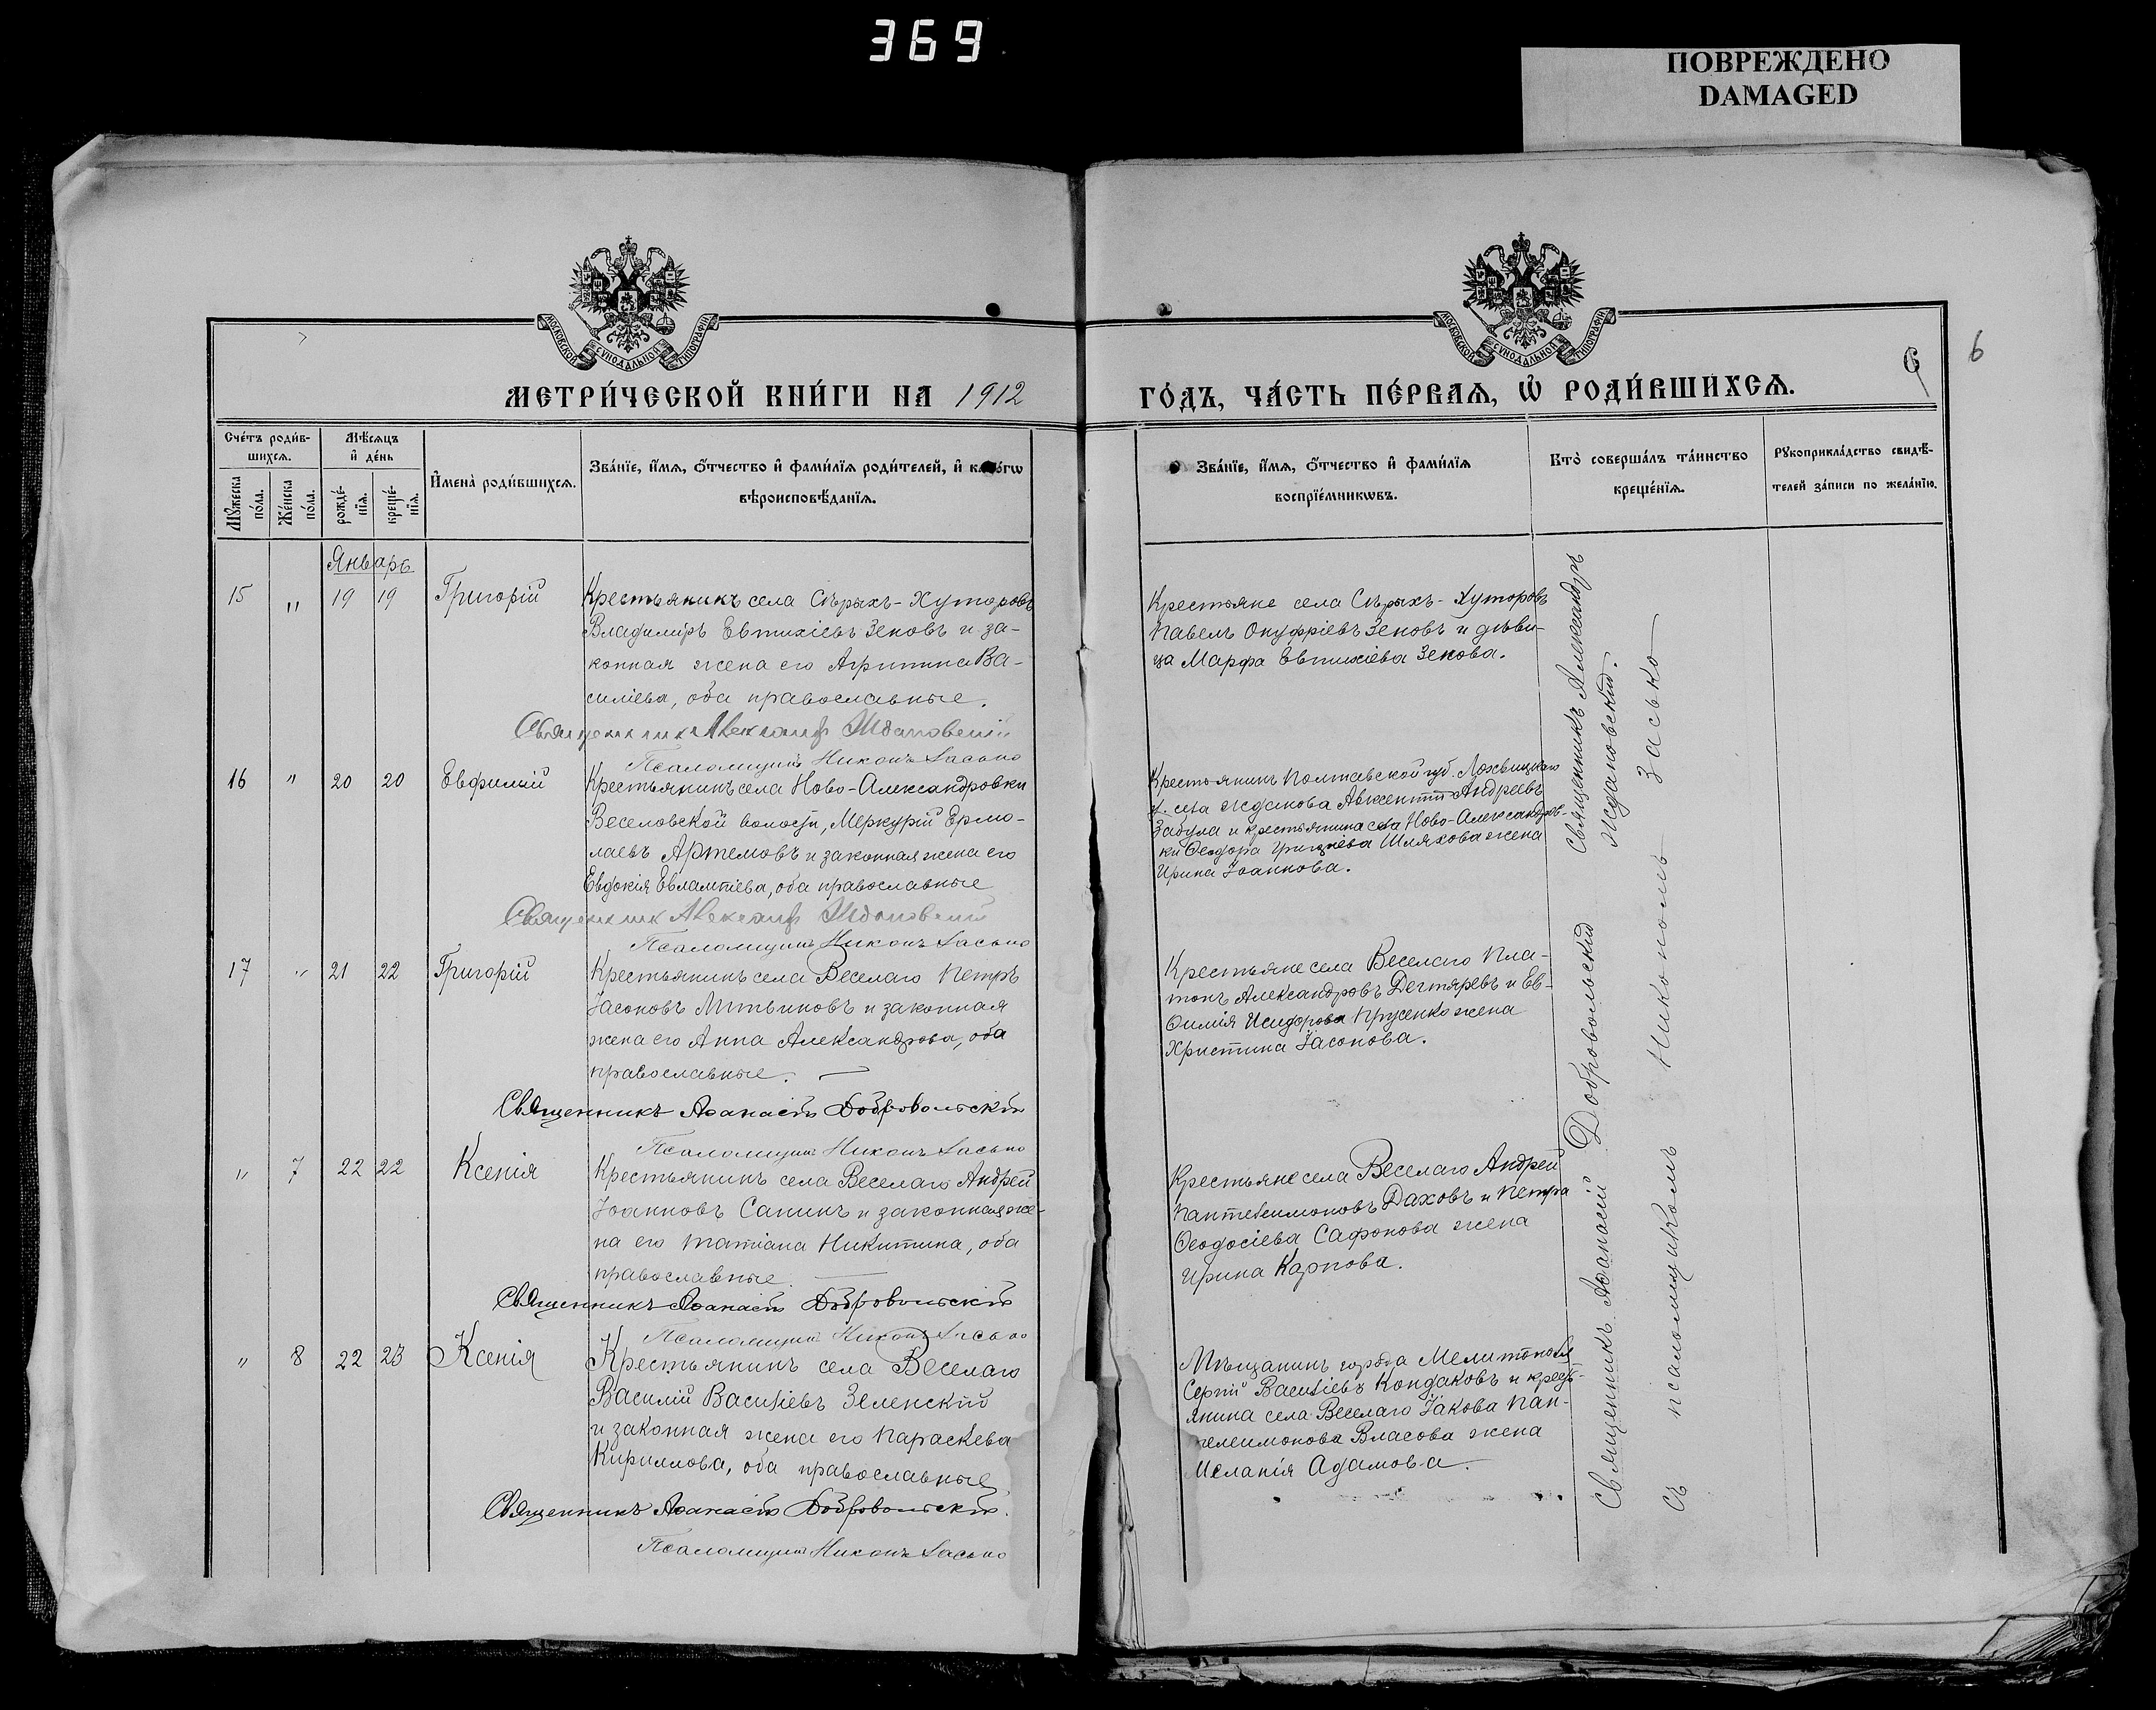 369
ПОВРЕЖДЕНО
DAMAGED
МОСКОВСКОЙ СѴНОДАЛЬНОЙ ТИПОГРАФІИ
МОСКОВСКОЙ СѴНОДАЛЬНОЙ ТИПОГРАФІИ
6
6
МЕТРИ́ЧЕСКОЙ КНИ́ГИ НА 1912
ГО́ДЪ, ЧА́СТЬ ПЕ́РВАѦ, Ѡ҆ РОДИ́ВШИХСѦ.
Сче́тъ роди́в-
шихсѧ.
Мѣ́сѧцъ
и҆ де́нь
Мꙋ́жеска по́ла.
Же́нска по́ла.
рожде́-нїѧ.
креще́-нїѧ.
И҆мена̀ роди́вшихсѧ.
Зва́нїе, и҆́мѧ, ѻ҆́тчество и҆ фами́лїѧ роди́телей, и҆ како́гѡ
вѣроисповѣ́данїѧ.
Зва́нїе, и҆́мѧ, ѻ҆́тчество и҆ фами́лїѧ
воспрїе́мникѡвъ.
Кто̀ соверша́лъ та́инство
креще́нїѧ.
Рꙋкоприкла́дство свидѣ́-
телей за́писи по жела́нїю.
Январь
15 " 19 19 Григорій
Крестьянинъ села Сѣрыхъ-Хуторовъ
Владиміръ Евтихіевъ Зековъ и за-
конная жена его Агрипина Ва-
силіева, оба православные.
Священник Александр Ждановскій
Псаломщикъ Никонъ Засько
Крестьяне села Сѣрыхъ-Хуторовъ
Павелъ Онуфріевъ Зековъ и дѣви-
ца Марфа Евтихіева Зекова.
16 " 20 20 Евфимій
Крестьянинъ села Ново-Александровки
Веселовской волости, Меркурій Ермо-
лаевъ Артемовъ и законная жена его
Евдокія Евлампіева, оба православные
Священник Александр Ждановскій
Псаломщикъ Никонъ Засько
Крестьянинъ Полтавской губ. Лохвицкаго
у. села Жданова Авксентій Андреевъ
Забула и крестьянина села Ново-Александров-
ки Ѳеодора Шляхова жена
Ирина Іоаннова.
17 " 21 22 Григорій
Крестьянинъ села Веселаго Петръ
Іасоновъ Литвиновъ и законная
жена его Анна Александрова, оба
православные.
Священникъ Аѳанасій Добровольскій
Псаломщикъ Никонъ Засько
Крестьяне села Веселаго Пла-
тонъ Александровъ Дегтяревъ и Ев-
ѳимія Исидорова Прусенко жена
Христина Іасонова.
" 7 22 22 Ксенія
Крестьянинъ села Веселаго Андрей
Іоанновъ Сапинъ и законная же-
на его Татіана Никитина, оба
православные.
Священникъ Аѳанасій Добровольскій
Псаломщикъ Никонъ Засько
Крестьяне села Веселаго Андрей
Пантелеимоновъ Даховъ и Петра
Ѳеодосіева Сафонова жена
Ирина Карпова.
" 8 22 23 Ксенія
Крестьянинъ села Веселаго
Василій Василіевъ Зеленскій
и законная жена его Параскева
Кириллова, оба православные
Священникъ Аѳанасій Добровольскій.
Псаломщикъ Никонъ Засько
Мѣщанинъ города Мелитополя
Сергій Василіевъ Кондаковъ и кресть-
янина села Веселаго Іакова Пан-
телеимонова Власова жена
Меланія Адамова.
Священникъ Аѳанасій Добровольскій Священникъ Александръ
Ждановскій.
съ псаломщикомъ Никономъ Засько